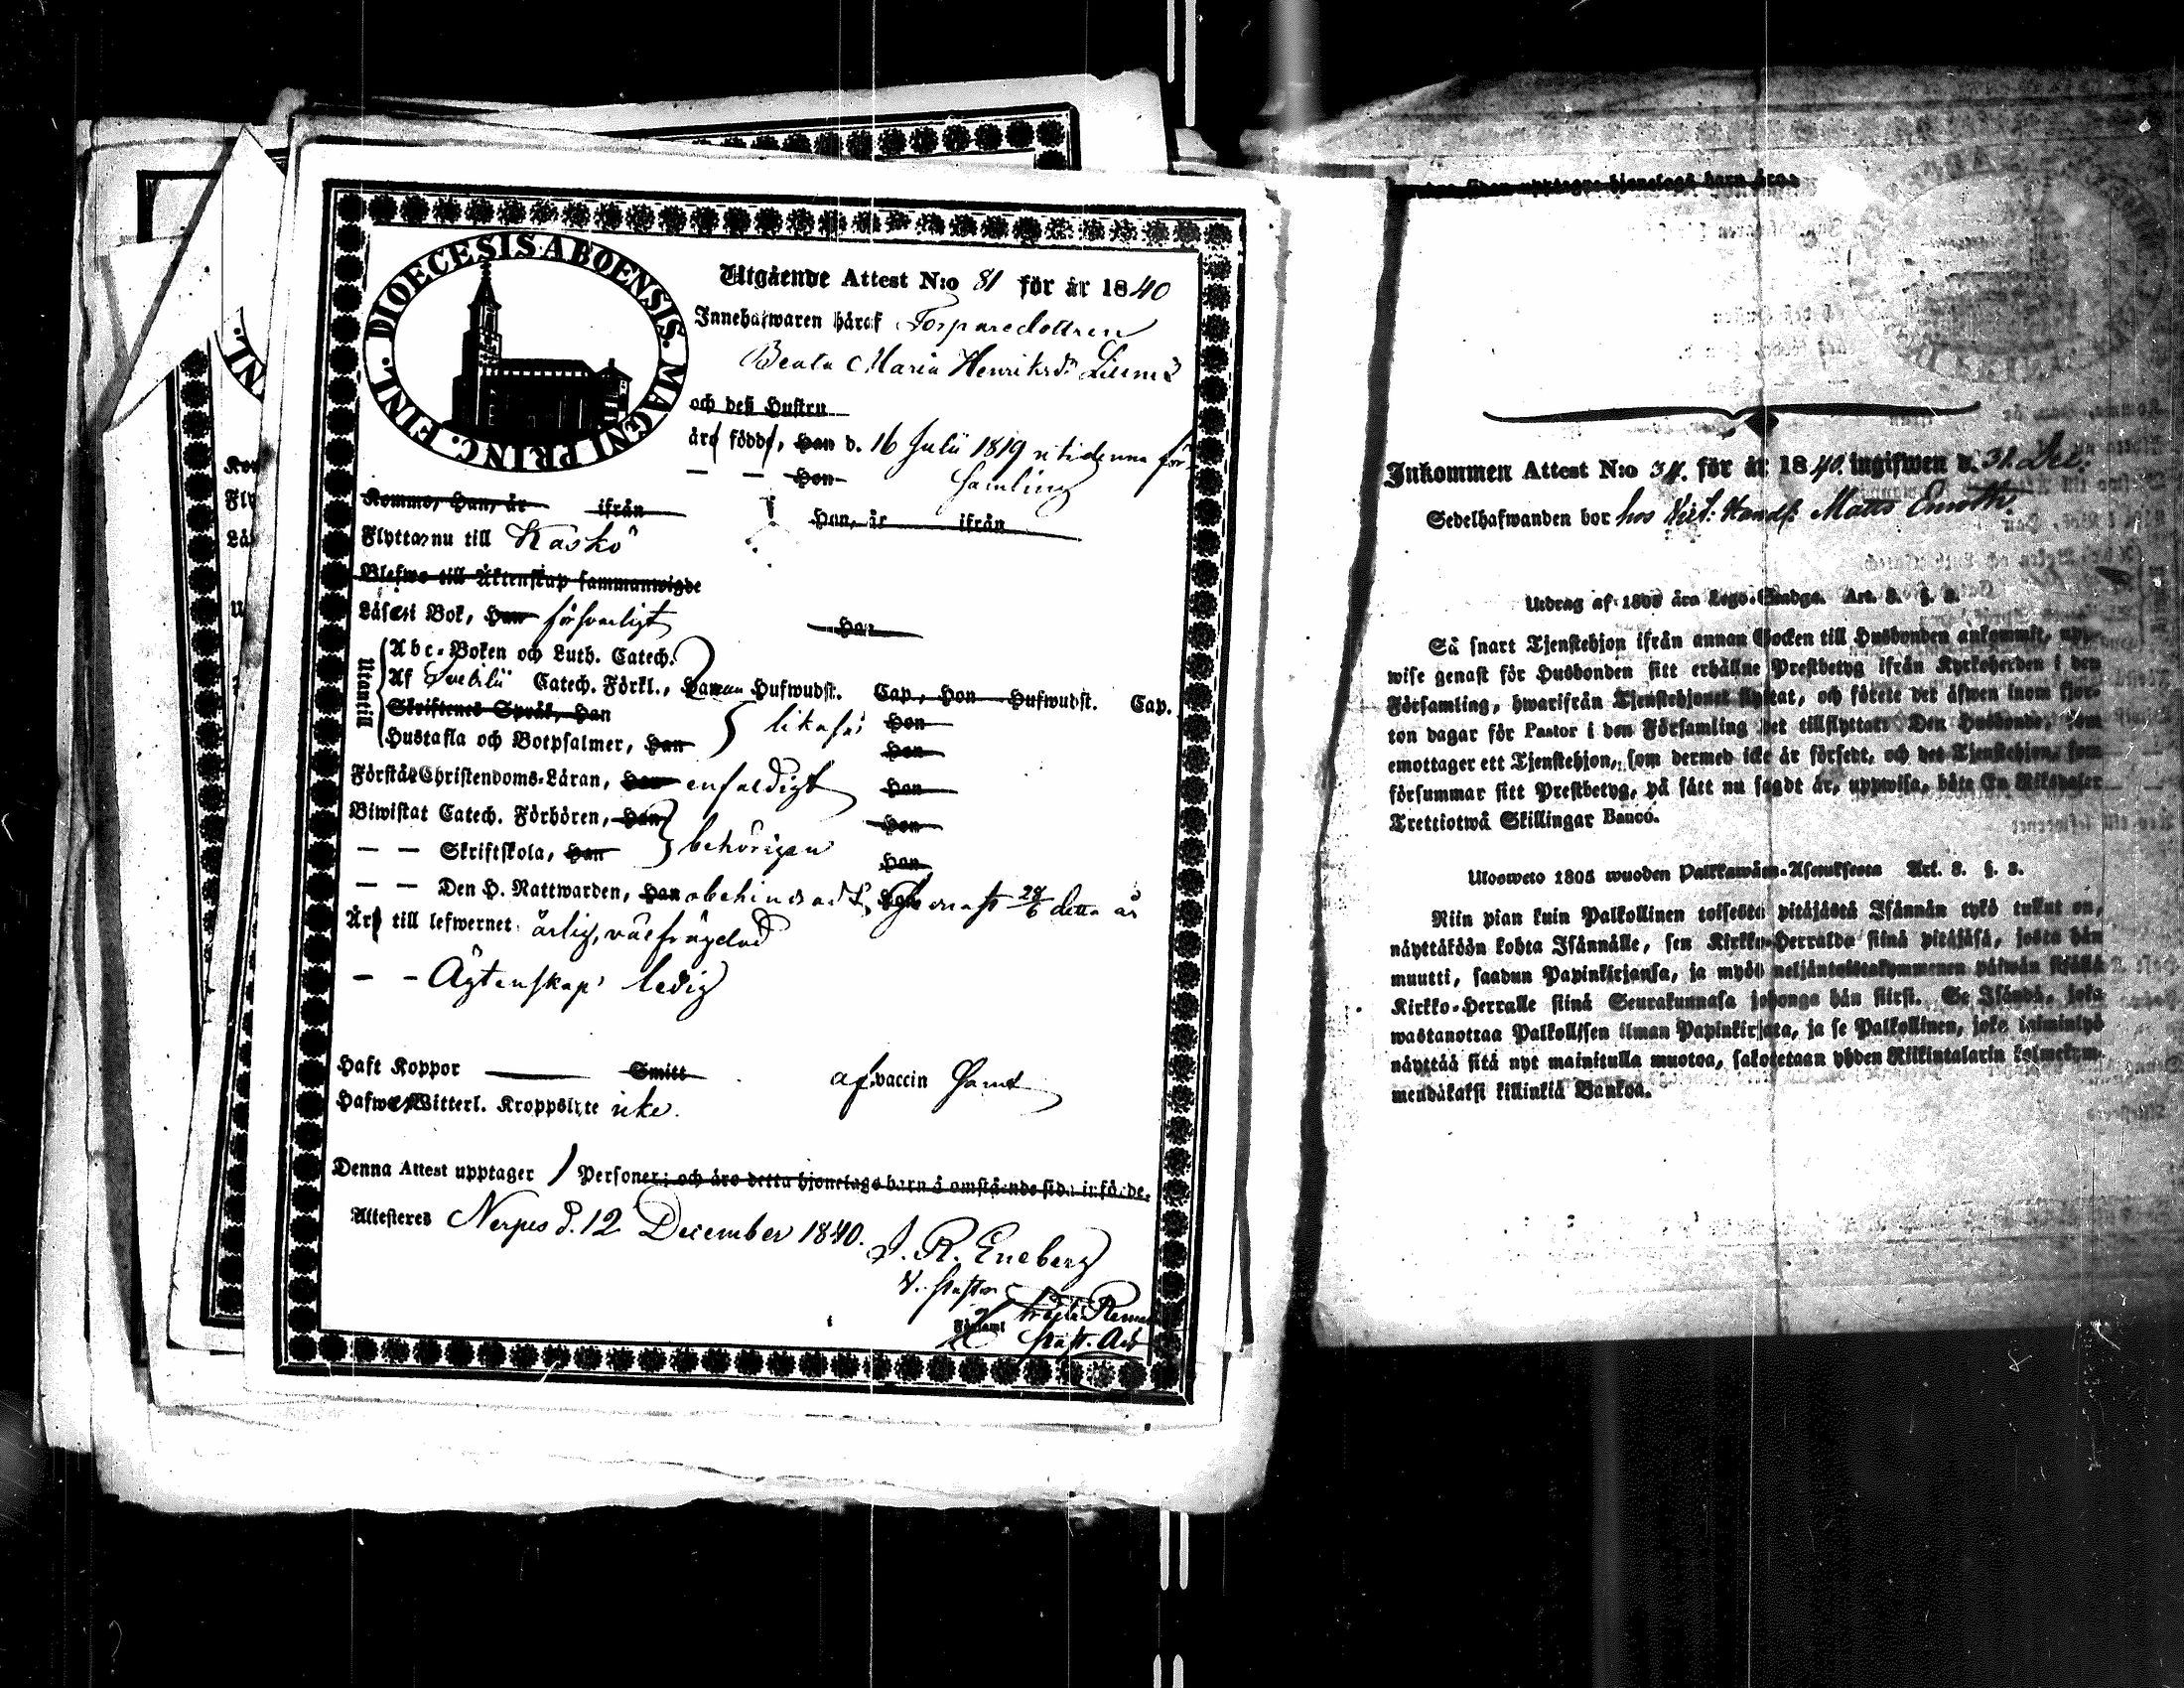 DIOECESIS ABOENSIS. MAGNI PRINC. FINL.
Utgående Attest N:o 81 för år 1840
Innehafwaren häraf Torparedottren
Beata Maria Henriksd:r
och deß Hustru
äro födde, Han d. 16 Julii 1819 uti denna för
— — Hon samling
Kommo, Han, år ifrån Hon, år ifrån
Flytta nu till Kaskö
Blefwo till Äktenskap sammanwigde
Läsa i Bok, Han försvarligt Hon
Utantill
Abc-Boken och Luth. Catech.
Af Svebilii Catech. Förkl., Han Hufwudst. Cap., Hon Hufwudst. Cap.
Skriftenes Språk, Han likaså Hon
Hustafla och Botpsalmer, Han Hon
Förstår Christendoms-Läran, Han enfaldigt Hon
Biwistat Catech. Förhören, Han Hon
— — Skriftskola, Han behörigen Hon
— — Den H. Nattwarden, Han obehindrad, Hon senast 28/6 detta år
Äro till lefwernet ärlig, välfrägdad
— — Ägtenskap ledig
Haft Koppor — Smitt af vaccin
Hafwa Witterl. Kroppslyte icke.
Denna Attest upptager 1 Personer; och äro detta hjonelags barn å omstående sida införde.
Attesteras Nerpes d. 12 December 1840.
J. R. Eneberg
V. Pastor
Församl
Past. Adj
äro sidan upptagne hjonelags barn äro
Inkommen Attest N:o 34. för år 1840. ingifwen d. 31. Dec.
Sedelhafwanden bor hos Vict: Handl: Matts
Utdrag af 1805 års Lego-Stadga. Art. 8. §. 3.
Så snart Tjenstehjon ifrån annan Socken till Husbonden ankommit, upp-
wise genast för Husbonden sitt erhållne Prestbetyg ifrån Kyrkoherden i den
Församling, hwarifrån Tjenstehjonet flyttat, och förete det äfwen inom fjor-
ton dagar för Pastor i den Församling det tillflyttat. Den Husbonde, som
emottager ett Tjenstehjon, som dermed icke är försedt, och det Tjenstehjon, som
försummar sitt Prestbetyg, på sätt nu sagdt är, uppwisa, böte En Riksdaler
Trettiotwå Skillingar Banco.
Ulosweto 1805 wuoden Palkkawäen-Asetuksesta Art. 8. §. 3.
Niin pian kuin Palkollinen toisesta pitäjästä Isännän tykö tullut on,
näyttäköön kohta Isännälle, sen Kirkko-Herralda siinä pitäjäsä, josta hän
muutti, saadun Papinkirjansa, ja myös neljäntoistakymmenen päiwän sisällä
Kirkko-Herralle siinä Seurakunnasa johonga hän siirsi. Se Isändä, joka
wastanottaa Palkollisen ilman Papinkirjata, ja se Palkollinen, joka laiminlyö
näyttää sitä nyt mainitulla muotoa, sakotetaan yhden Riikintalarin kolmekym-
mendäkaksi killinkiä Bankoa.